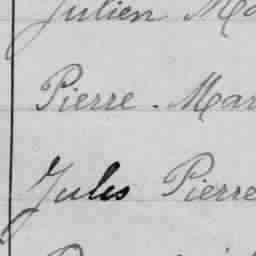 Julien
Pierre. Mar
Jules Pierre